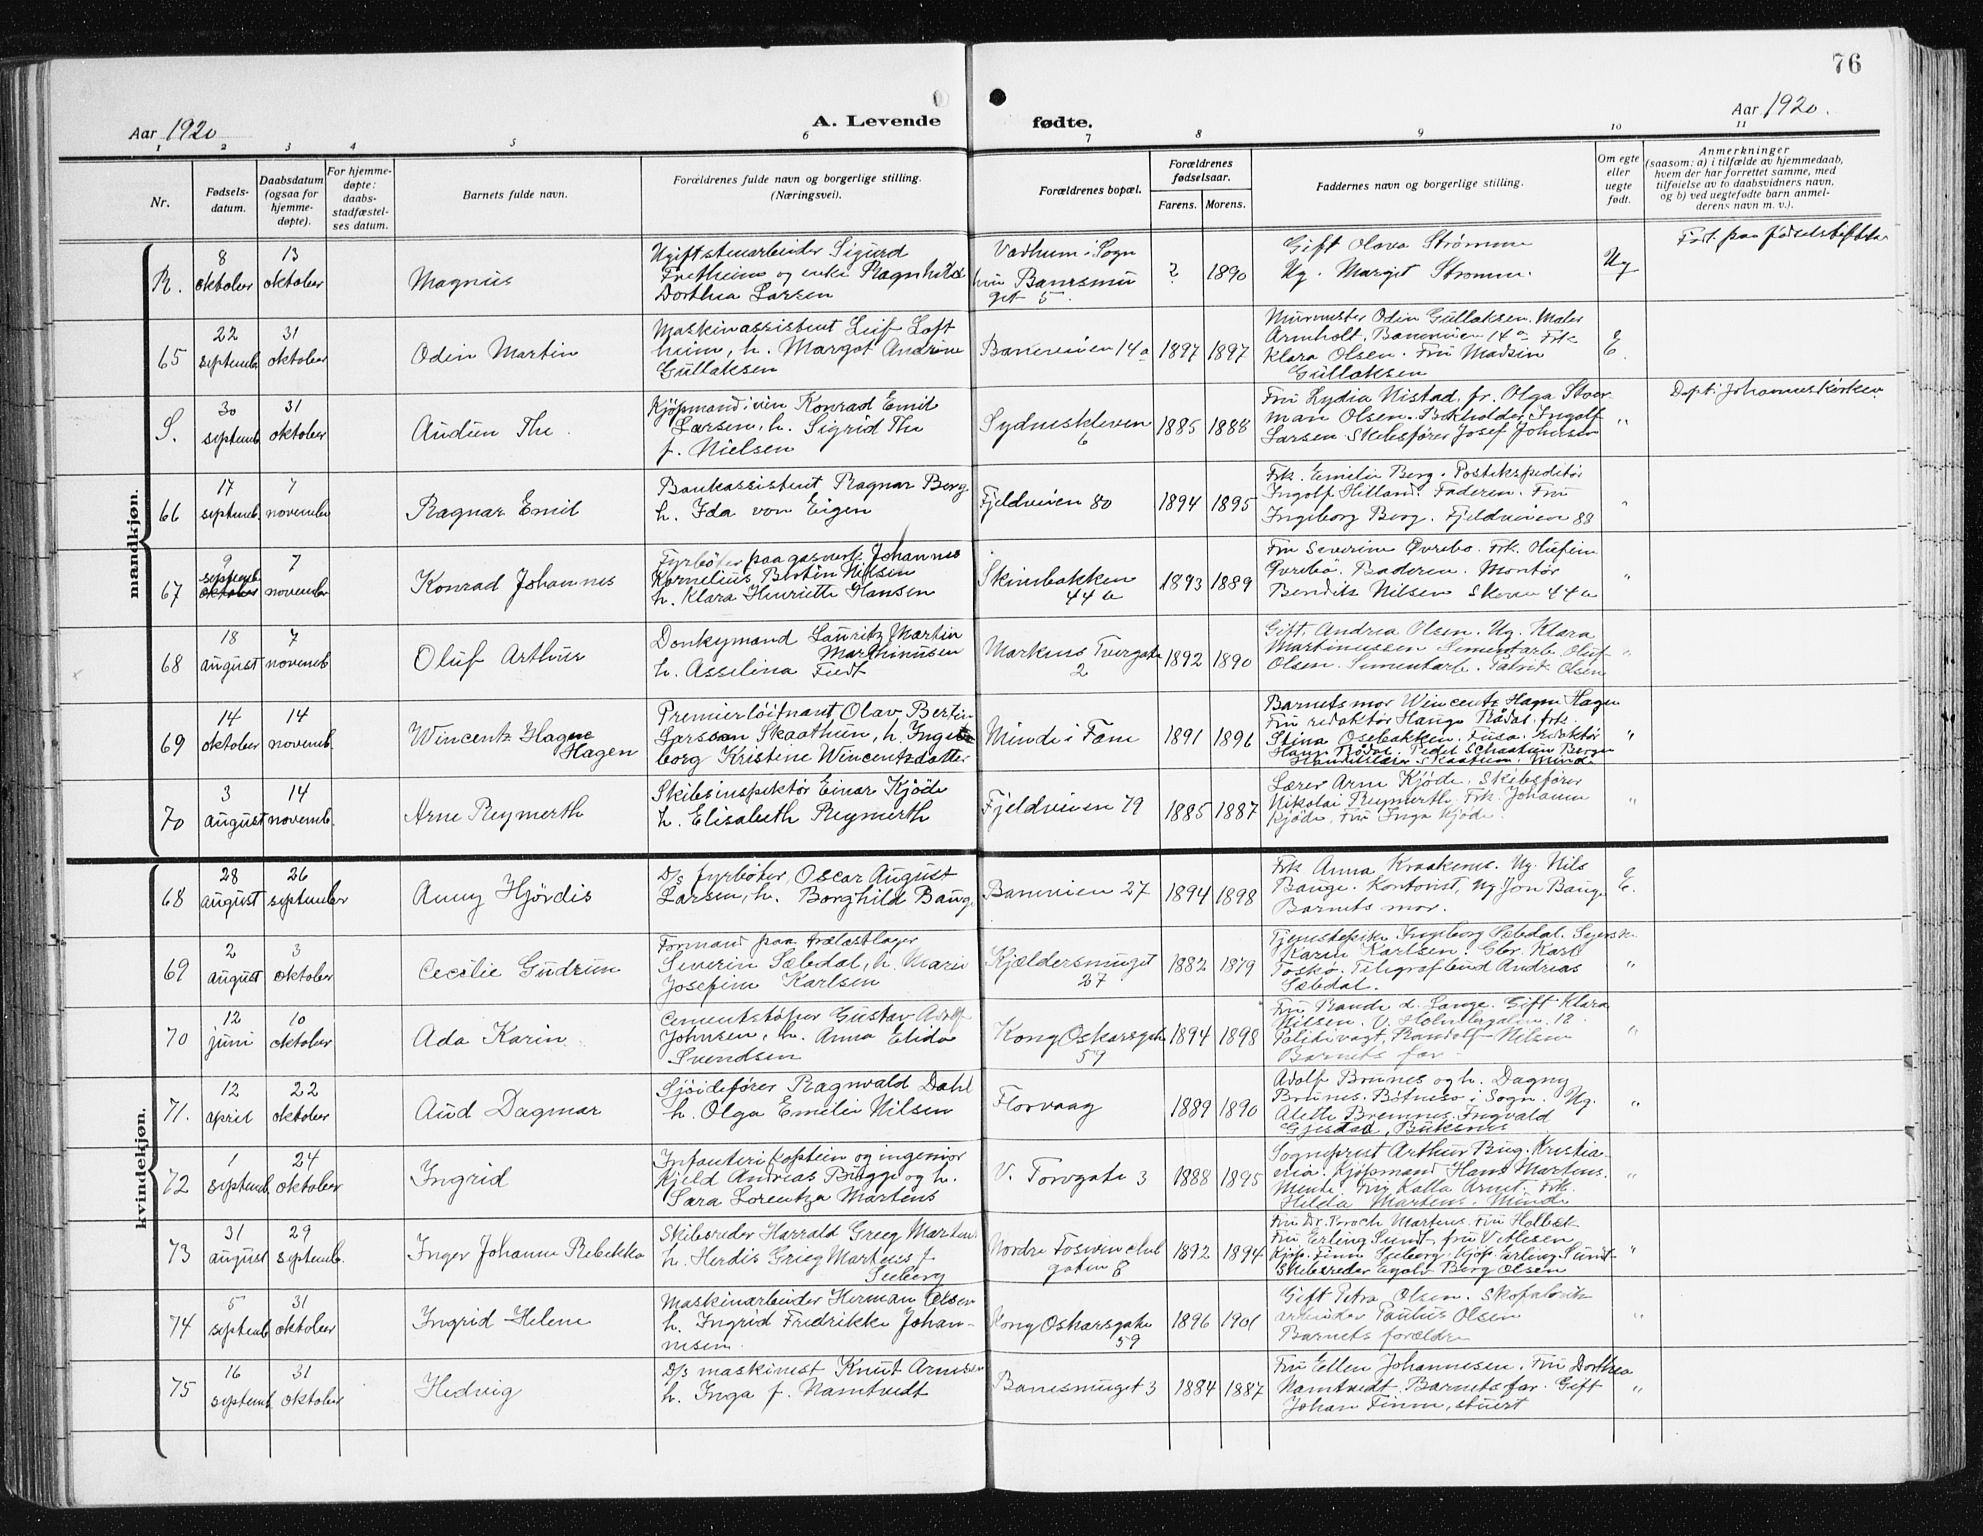 76
Aar 1920
A. Levende fødte.
Aar 1920.
1 2 3 4 5 6 7 8 9 10 11
Nr.
Fødsels-
datum.
Daabsdatum
(ogsaa for
hjemme-
døpte).
For hjemme-
døpte:
daabs-
stadfæstel-
ses datum.
Barnets fulde navn.
Forældrenes fulde navn og borgerlige stilling.
(Næringsvei).
Forældrenes bopæl.
Forældrenes
fødselsaar.
Farens. Morens.
Faddernes navn og borgerlige stilling.
Om egte
eller
uegte
født.
Anmerkninger
(saasom: a) i tilfælde av hjemmedaab,
hvem der har forrettet samme, med
tilføielse av to daabsvidners navn,
og b) ved uegtefødte barn anmel-
derens navn m. v.).
mandkjøn.
R.
8
oktober
13
oktober
Magnus
Ugift stenarbeider Sigurd
Fretheim og enke Ragnhild
Dorthea Larsen
Vadheim i Sogn
hun Banesmu
get 5.
? 1890
Gift Olava Strømme
Ug. Margit Strømme.
Ug
Fort. paa fødselsstiftelse
65
22
septemb.
31
oktober
Odin Martin
Maskinassistent Leif Loft
heim, h. Margot Andrine
Gullaksen
Baneveien 14a
1897 1897
Murmester Odin Gullaksen. Maler
Armholt. Baneveien 14a Frk
Klara Olsen. Fru Madsin
Gullaksen
E.
S.
30
septemb.
31
oktober
Audun The
Kjøpmand i vin Konrad Emil
Larsen, h. Sigrid The
f. Nielsen
Sydneskleven
6
1885 1888
Fru Lydia Nistad, fr. Olga Stoer
man Olsen. Bokholder Ingolf
Larsen Skibsfører Josef Johnsen
"
Døpt i Johanneskirken
66
17
septemb.
7
november
Ragnar Emil
Bankassistent Ragnar Berg
h. Ida von Eigen
Fjeldveien 80
1894 1895
Frk. Emilie Berg. Postekspeditør
Ingolf Hilland. Faderen. Fru
Ingeborg Berg. Fjeldveien 88
"
67
9
septemb.
oktober
7
november
Konrad Johannes
Fyrbøter paa gasverk Johannes
Kornelius Bertin Nilsen
h. Klara Henriette Hansen
Skivebakken
44 a
1893 1889
Fru Severine Øvrebø. Frk.
Øvrebø. Faderen. Montør
Bendik Nilsen Skiven 44a
"
68
18
august
7
novemb.
Oluf Arthur
Donkymand Lauritz Martin
Marthinusen
h. Asselina Tuedt
Markens Tvergate
2
1892 1890
Gift. Andrea Olsen. Ug. Klara
Martinussen Sementarb. Oluf
Olsen. Sementarb. Patrik Olsen
"
69
14
oktober
14
novemb.
Wincentz Hagne
Hagen
Premierløitnant Olav Bertin
Larsson Skaathun, h. Inge
borg Kristine Wincentzdatter
Minde i Fane
1891 1896
Barnets mor Wincentz Hagne Hagen
Fru redaktør Hauge Rødal. frk.
Stina Osebakken. Fusa. Redaktør
Hauge Rødal. Peder Schaatun Bergen
Skaatun. Minde
"
70
3
august
14
novemb.
Arne Reymerth
Skibsinspektør Einar Kjöde
h. Elisabeth Reymerth
Fjeldveien 79
1885 1887
Lærer Arne Kjöde. Skibsfører
Nikolai Reymerth. Frk. Johanne
Kjöde, Fru Inga Kjöde.
"
kvindekjøn.
68
28
august
26
september
Anny Hjørdis
D/s fyrbøter, Oscar August
Larsen, h. Borghild Bauge
Baneveien 27
1894 1898
Frk Anna Kraakenes. Ug. Nils
Bauge. Kontorist, Ug. Jon Bauge
Barnets mor.
E.
69
2
august
3
oktober
Cecilie Gudrun
Formand paa trælastlager
Severin Sæbdal, h. Marie
Josefine Karlsen
Kjældersmuget
27
1882 1879
Tjenestepike Ingeborg Sæbdal. Syerske
Karin Karlsen. Gbr. Karl
Toskø. Telegrafbud Andreas
Sæbdal.
"
70
12
juni
10
oktober
Ada Karin
Cementstøper Gustav Adolf
Johnsen, h. Anna Elida
Svendsen
Kong Oskarsgate
59
1894 1898
Fru Rande d. Lange. Gift Klara
Nilsen. V. Holmbergalm. 12
Politivagt, Randolf Nilsen
Barnets far
"
71.
12
april
22
oktober
Aud Dagmar
Sjöidefører Ragnvald Dahl
h. Olga Emilie Nilsen
Florvaag
1889 1890
Adolf Brunes og h. Dagny
Brunes. Bøtnesø i Sogn. Ug.
Alette Bremnes. Ingvald
Gjesdal, Buksnes
"
72
1
septemb.
24
oktober
Ingrid
Infanterikaptein og ingeniør
Kjeld Andreas Bugge og h.
Sara Lorentza Martens
V. Torvgate 3
1888 1895
Sogneprest Arthur Bug. Kristia-
nia. Kjøpmand Hans Martens.
Minde, Fru Kalla Arnet. Frk.
Helda Martens. Minde
"
73
31
august
29
septemb.
Inger Johanne Rebekka
Skibsreder Harrald Grieg Martens
h. Herdis Grieg Martens f.
Seeberg
Nordre Foswinckel
gaten 8
1892 1894
Fru Dr. Broch Martens. Fru Holbæk
Fru Erling Sundt, fru Vetlesen
Kjøp. Finn Seeberg. Kjøp. Erling Sundt
Skibsreder Egolv Berg Olsen
"
74
5
septemb
31
oktober
Ingrid Helene
Maskinarbeider Herman Olsen
h. Ingrid Fredrikke Johan-
nesen.
Kong Oskarsgate
59
1896 1901
Gift Petra Olsen. Skofabrik
arbeider Paulus Olsen
Barnets forældre
"
75
16
septemb.
31
oktober
Hedvig
D/s maskinist Knut Arnesen
h. Inga f. Namtvedt
Banesmuget 3
1884 1887
Fru Ellen Johannesen. Fru Dorthea
Namtvedt. Barnets far. Gift
Johan Finne, stuert
"